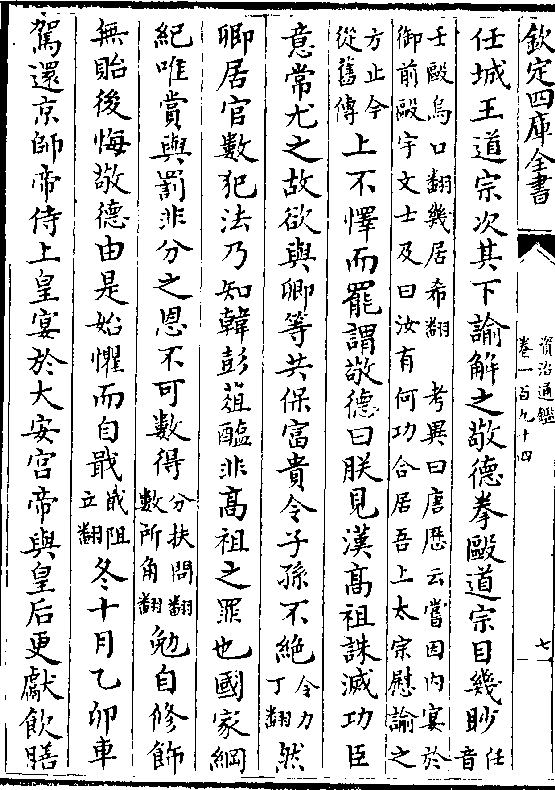 欽定四庫全書
資治通鑑
卷一百九十四
七
任城王道宗次其下諭解之敬德拳毆道宗目幾眇任音
壬毆烏口翻幾居希翻 考異曰唐歷云嘗因内宴於
御前毆宇文士及曰汝有何功合居吾上太宗慰諭之
方止今
從舊傳
上不懌而罷謂敬德曰朕見漢髙祖誅滅功臣
意常尤之故欲與卿等共保富貴令子孫不絶令力丁翻然
卿居官數犯法乃知韓彭葅醢非髙祖之罪也國家綱
紀唯賞與罰非分之恩不可數得分扶問翻數所角翻勉自修飾
無貽後悔敬德由是始懼而自戢戢阻立翻冬十月乙卯車
駕還京師帝侍上皇宴於大安宫帝與皇后更獻飲膳